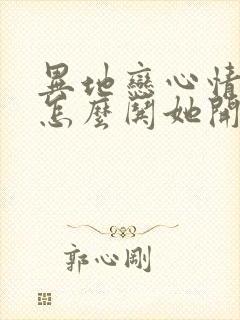 異地戀心情
怎麼鬨她開
郭心剛